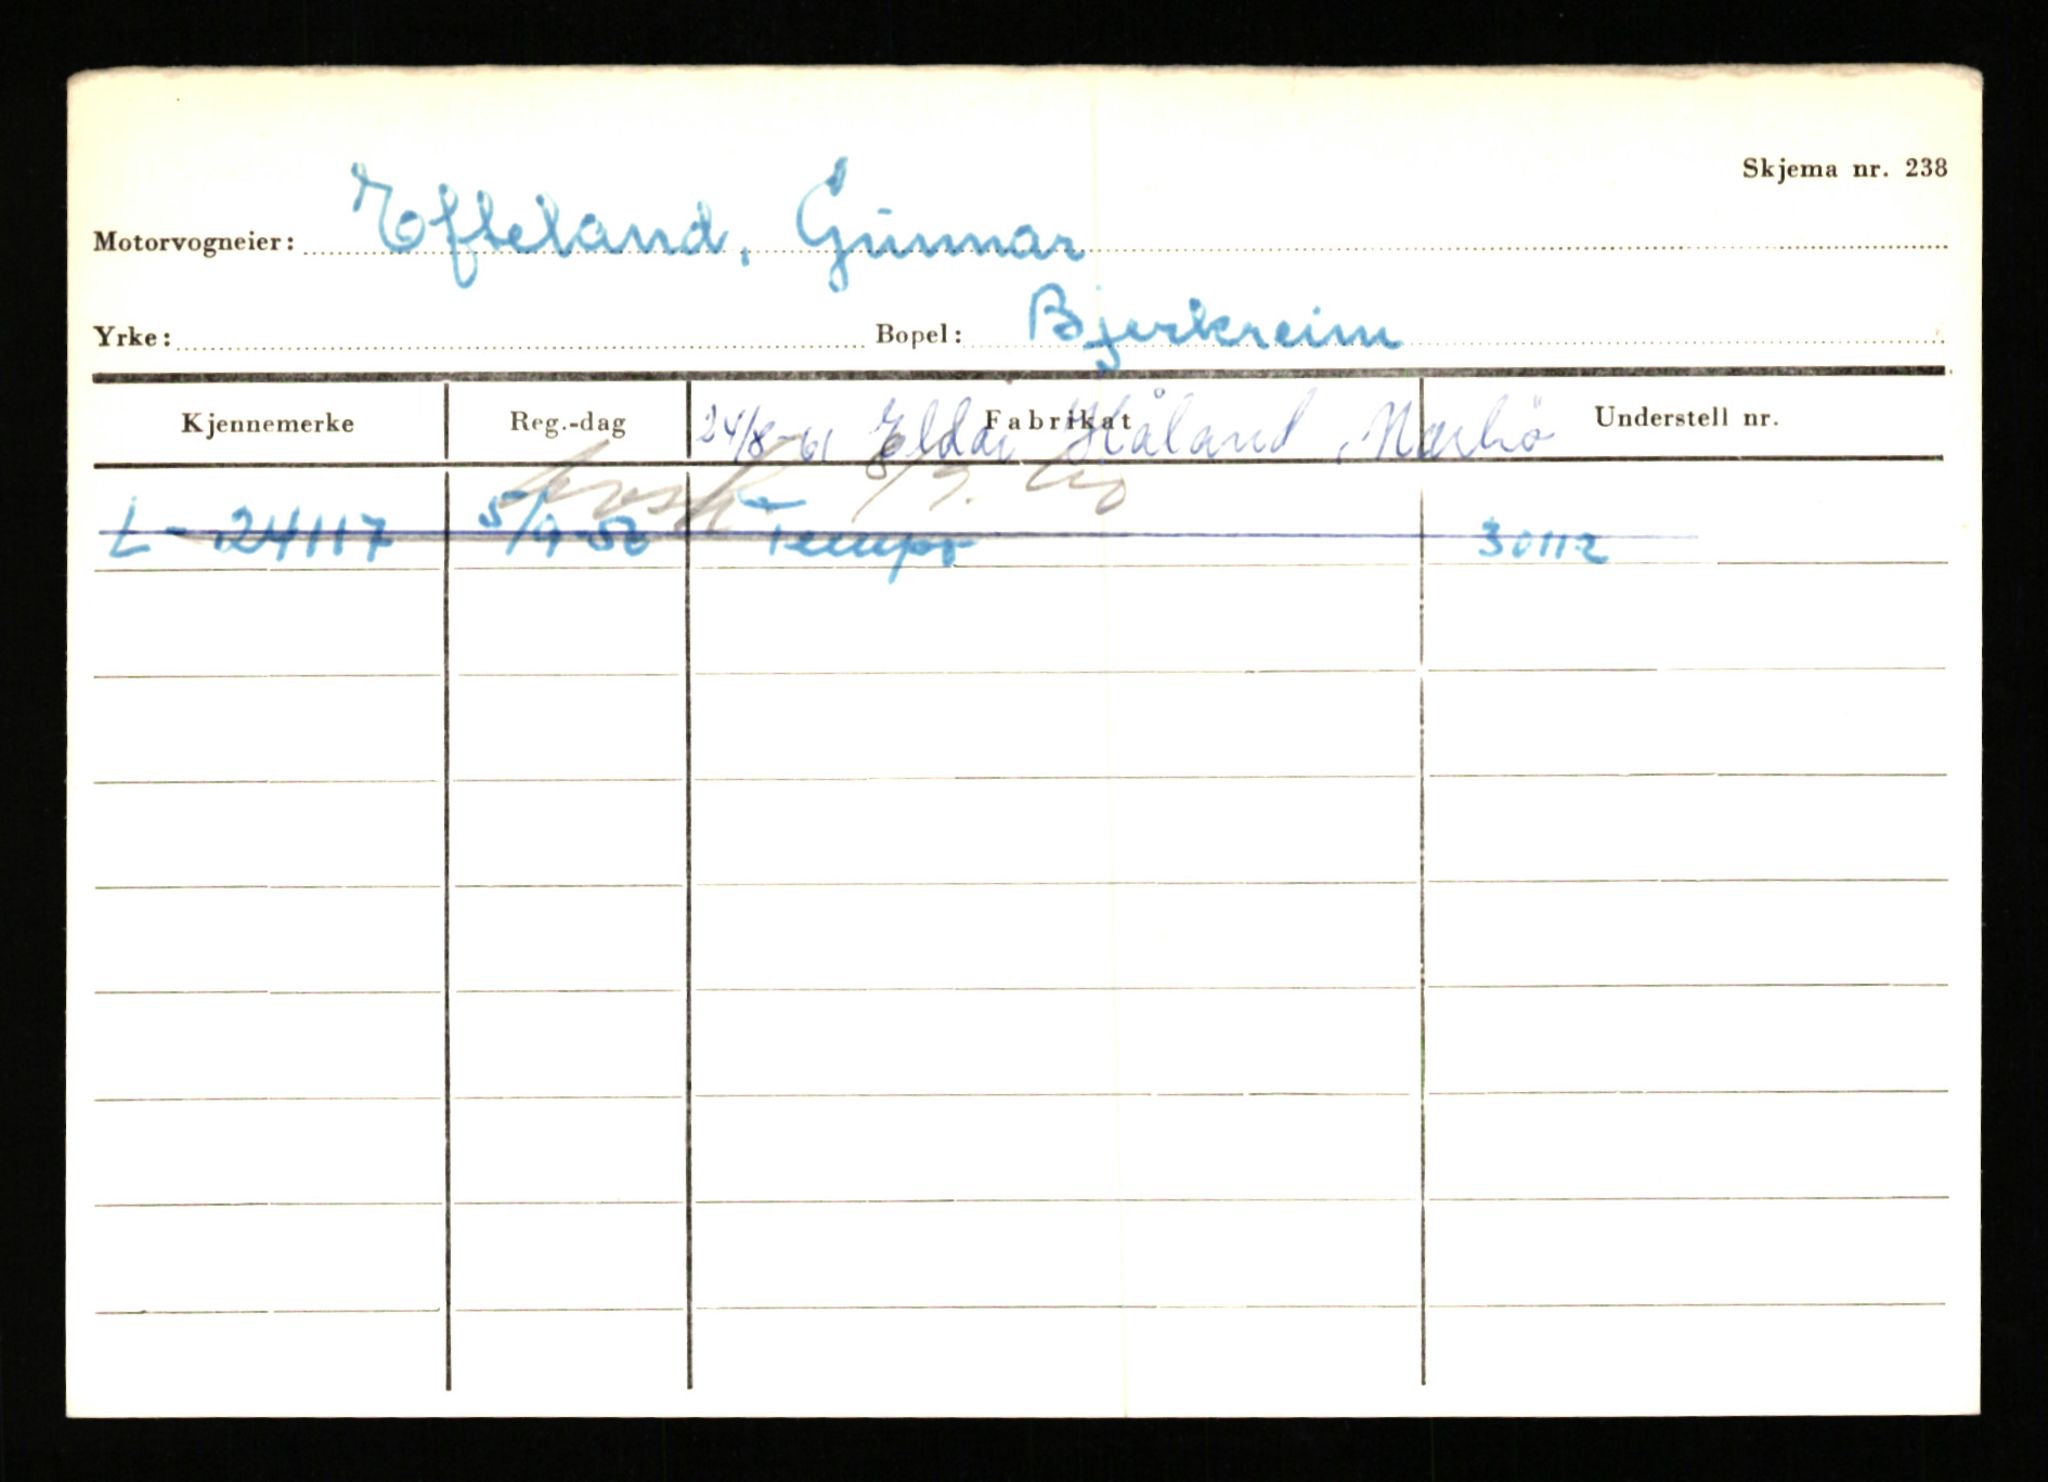 Skjema nr. 238
Motorvogneier: Efteland, Gunnar
Yrke: Bopel: Bjerkreim
Kjennemerke Reg.-dag Fabrikat Understell nr.
24/8-61 Eldar Håland, Nærbö
L-24117 5/9-56 Tempo 30112